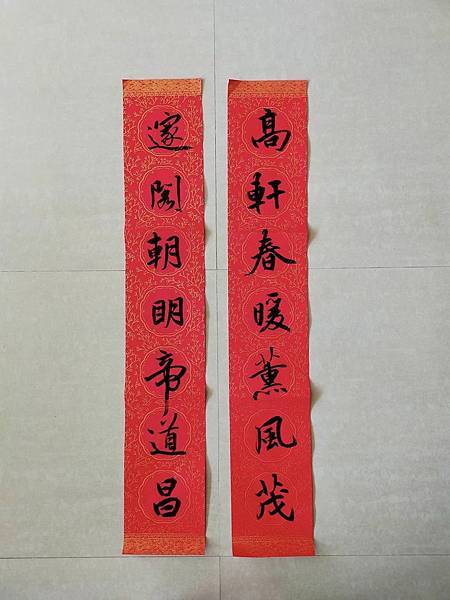 高軒春暖薰風茂
邃閣朝明帝道昌